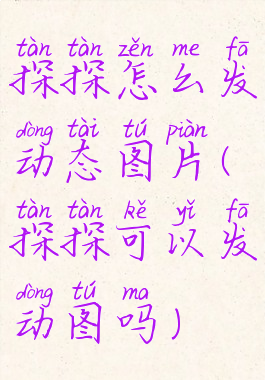 tàn tàn zěn me fā
探探怎么发
dòng tài tú piàn
动态图片(
tàn tàn kě yǐ fā
探探可以发
dòng tú ma
动图吗)